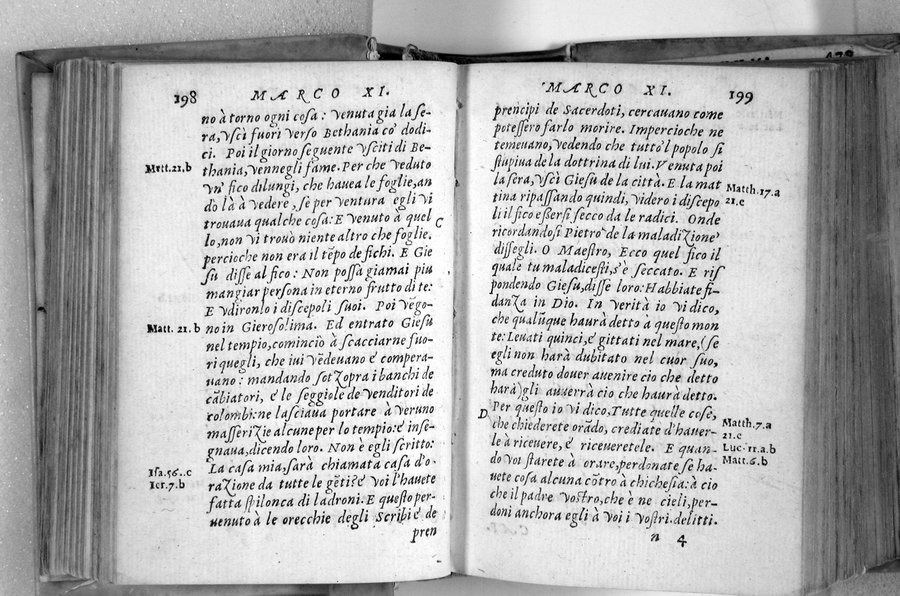 198 MARCO XI.
no à torno ogni cosa: Venuta gia la se-
ra, Vscì fuori verso Bethania co' dodi-
ci. Poi il giorno seguente Vsciti di Be-
Mvtt.21.b
thania, vennegli fame. Per che veduto
Vn' fico dilungi, che hauea le foglie, an
dò là à vedere, se per ventura egli vi
trouaua qualche cosa: E venuto à quel
C
lo, non vi trouò niente altro che foglie.
percioche non era il tẽpo de fichi. E Gie
su disse al fico: Non possa giamai piu
mangiar persona in eterno frutto di te:
E vdironlo i discepoli suoi. Poi vẽgo-
Matt. 21. b
no in Gierosolima. Ed entrato Giesù
nel tempio, cominciò à scacciarne fuo-
ri quegli, che iui vẽdeuano e' compera-
uano: mandando sotzopra i banchi de
cãbiatori, e le seggiole de venditori de
colombi: ne lasciaua portare à veruno
masserizie alcune per lo tempio: e' inse-
gnaua, dicendo loro. Non è egli scritto:
Isa.56.c
La casa mia, sarà chiamata casa d'o-
Ier.7.b
razione da tutte le gẽti? e' voi l'hauete
fatta spilonca di ladroni. E questo per-
uenuto à le orecchie degli Scribi e' de
pren
MARCO XI. 199
prencipi de Sacerdoti, cercauano come
potessero farlo morire. Impercioche ne
temeuano, vedendo che tutto'l popolo si
stupiua de la dottrina di lui. Venuta poi
la sera, vscì Giesù de la città. E la mat
Matth.17.a
tina ripassando quindi, videro i discepo
21.c
li il fico essersi secco da le radici. Onde
ricordandosi Pietro de la maladizione
dissegli. O Maestro, Ecco quel fico il
quale tu maladicesti, s'è seccato. E ris
pondendo Giesù, disse loro: Habbiate fi-
danza in Dio. In verità io vi dico,
che qualũque haurà detto a questo mon
te: Leuati quinci, e' gittati nel mare, (se
egli non harà dubitato nel cuor suo,
ma creduto douer auenire cio che detto
harà) gli auuerrà cio che haurà detto.
D
Per questo io vi dico, Tutte quelle cose,
Matth.7.a
che chiederete orãdo, crediate d'hauer-
21.c
le à riceuere, e' riceueretele. E quan-
Luc. 11.a.b
do voi starete à orare, perdonate se ha-
Matt.6.b
uete cosa alcuna cõtro à chichesia: à cio
che il padre vostro, che è ne cieli, per-
doni anchora egli à voi i vostri delitti.
n 4